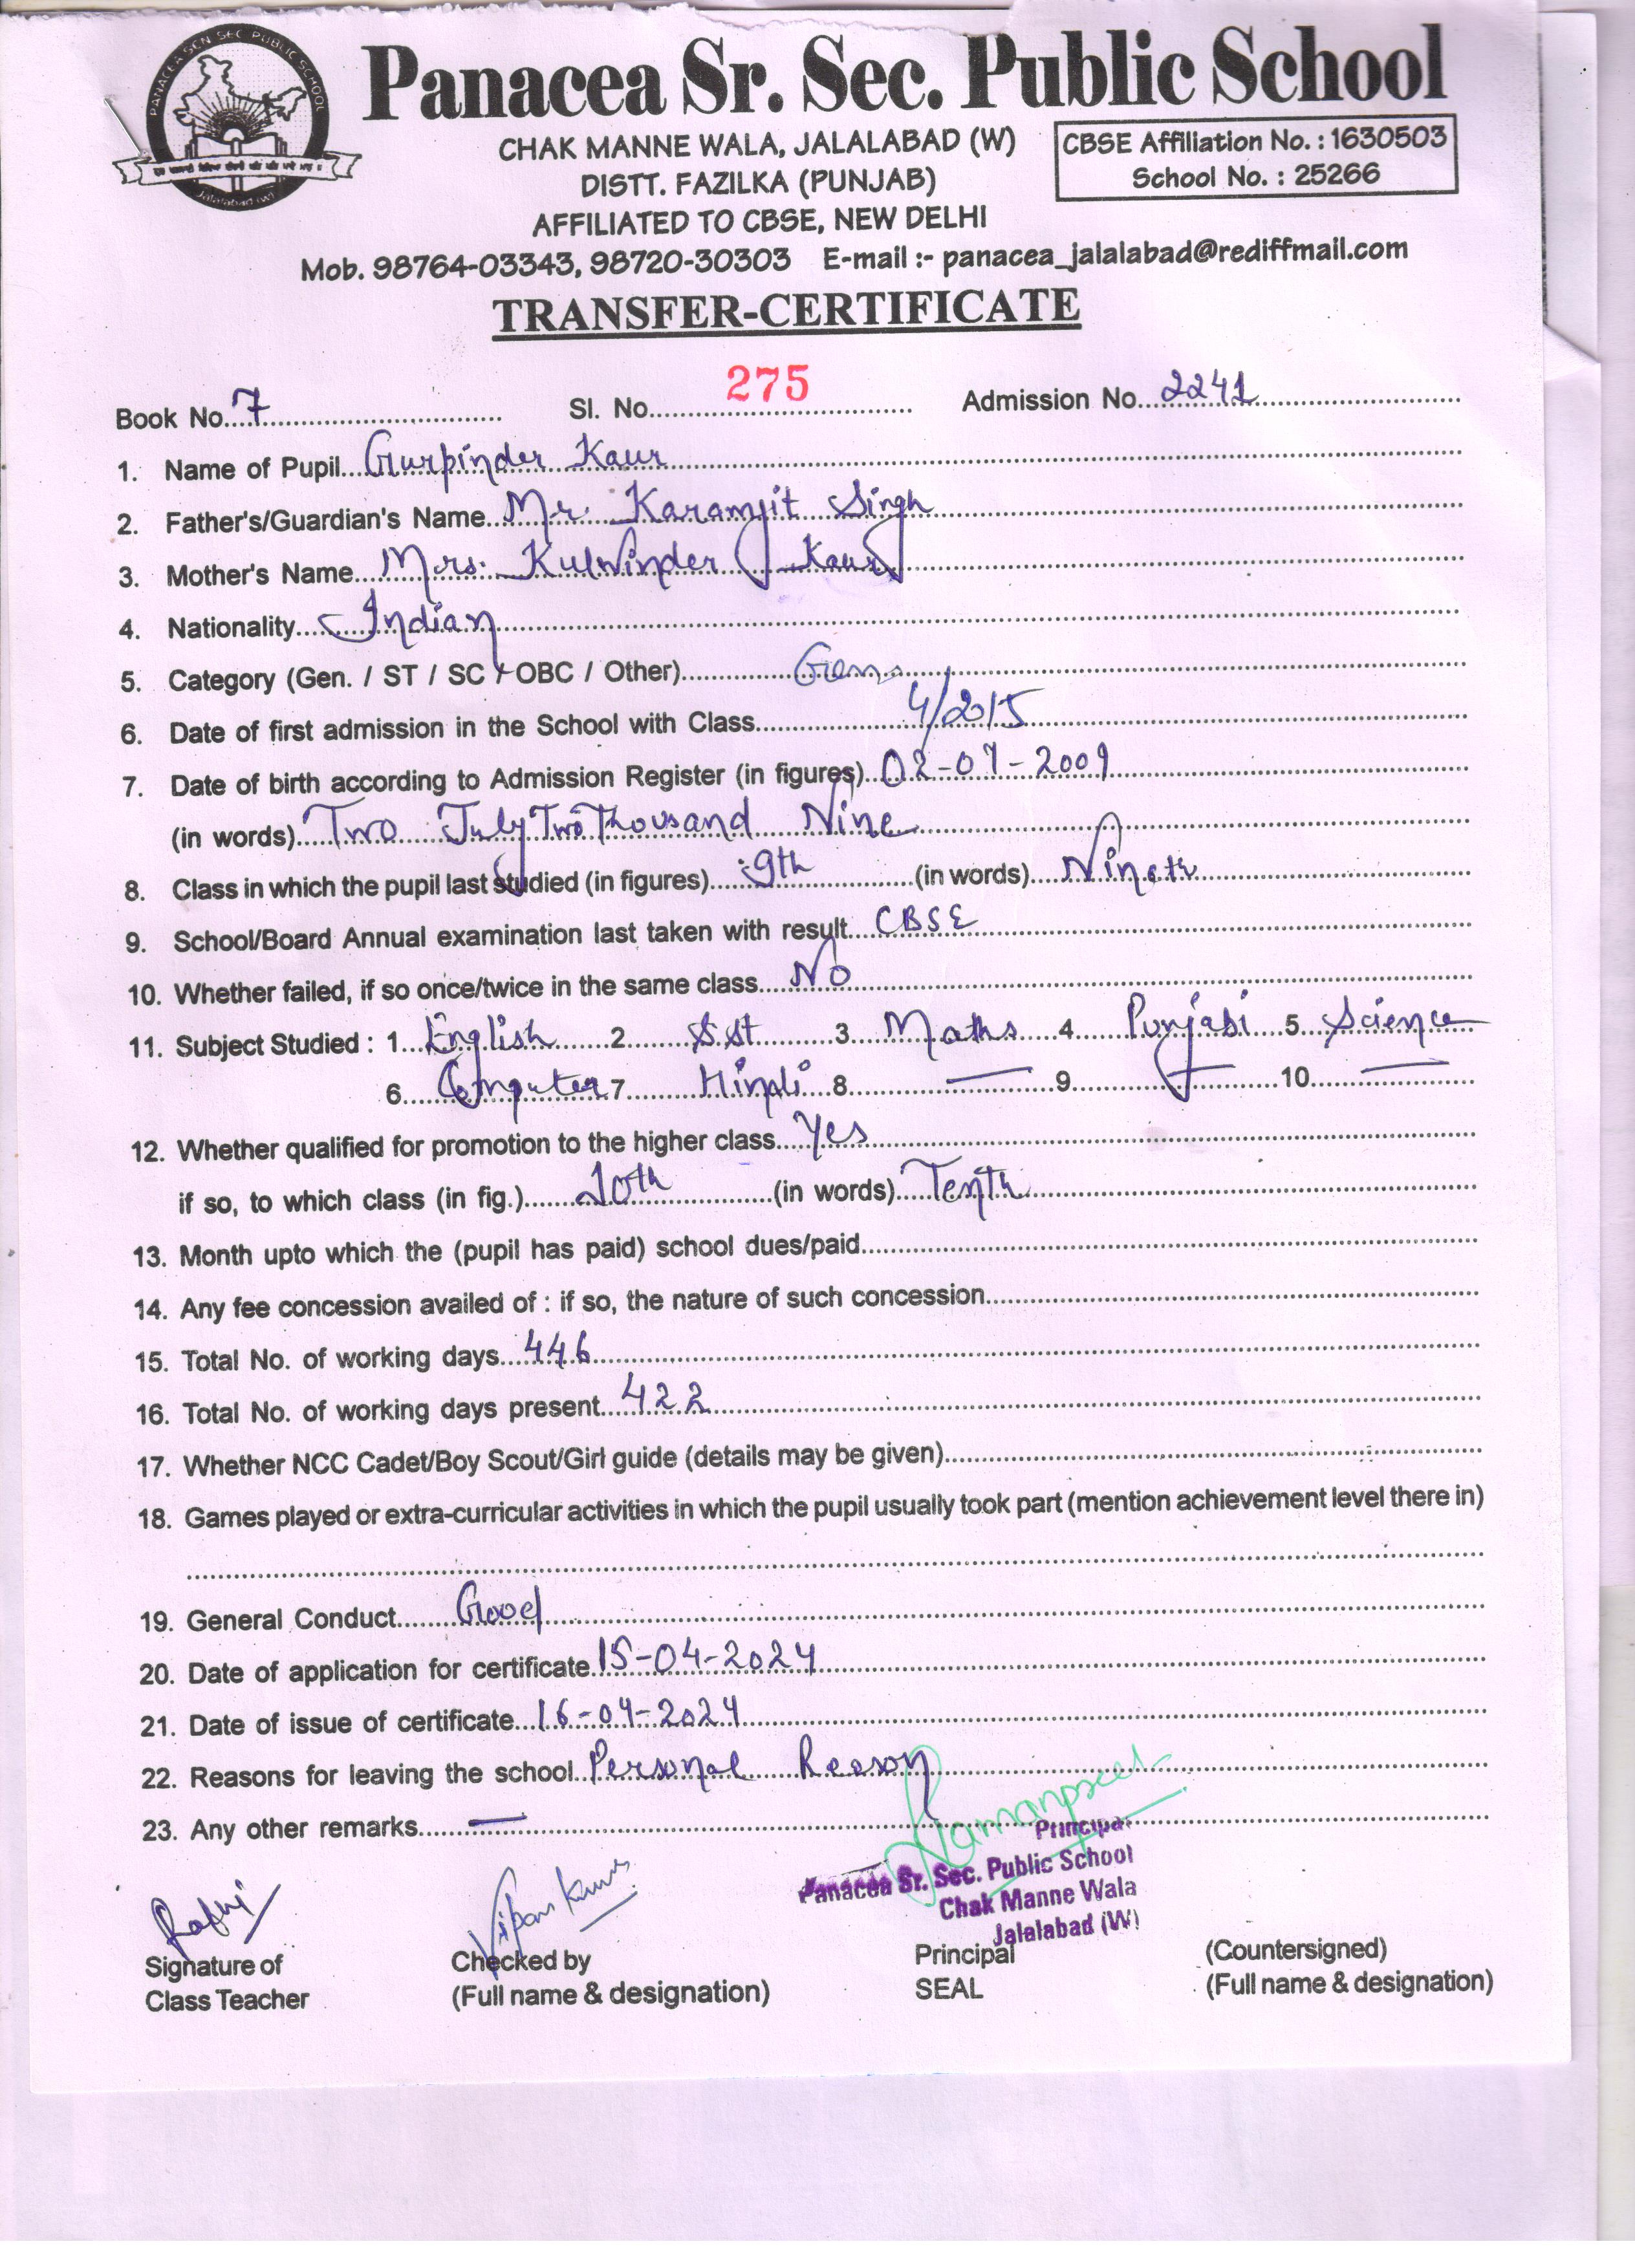 PANACEA SEN SEC PUBLIC SCHOOL
Jalalabad (W)
Panacea Sr. Sec. Public School
CHAK MANNE WALA, JALALABAD (W)
DISTT. FAZILKA (PUNJAB)
AFFILIATED TO CBSE, NEW DELHI
CBSE Affiliation No. : 1630503
School No. : 25266
Mob. 98764-03343, 98720-30303 E-mail :- panacea_jalalabad@rediffmail.com
TRANSFER-CERTIFICATE
Book No. 7 Sl. No. 275 Admission No. 2241
1. Name of Pupil Gurpinder Kaur
2. Father's/Guardian's Name Mr. Karamjit Singh
3. Mother's Name Mrs. Kulwinder Kaur
4. Nationality Indian
5. Category (Gen. / ST / SC / OBC / Other) Gen
6. Date of first admission in the School with Class 4/2015
7. Date of birth according to Admission Register (in figures) 02-07-2009
(in words) Two July Two Thousand Nine
8. Class in which the pupil last studied (in figures) 9th (in words) Nineth
9. School/Board Annual examination last taken with result CBSE
10. Whether failed, if so once/twice in the same class No
11. Subject Studied : 1 English 2 S.St 3 Maths 4 Punjabi 5 Science
6 Computer 7 Hindi 8 — 9 — 10 —
12. Whether qualified for promotion to the higher class Yes
if so, to which class (in fig.) 10th (in words) Tenth
13. Month upto which the (pupil has paid) school dues/paid
14. Any fee concession availed of : if so, the nature of such concession
15. Total No. of working days 446
16. Total No. of working days present 422
17. Whether NCC Cadet/Boy Scout/Girl guide (details may be given)
18. Games played or extra-curricular activities in which the pupil usually took part (mention achievement level there in)
19. General Conduct Good
20. Date of application for certificate 15-04-2024
21. Date of issue of certificate 16-04-2024
22. Reasons for leaving the school Personal Reason
23. Any other remarks —
Principal
Panacea Sr. Sec. Public School
Chak Manne Wala
Jalalabad (W)
Signature of Checked by Principal (Countersigned)
Class Teacher (Full name & designation) SEAL (Full name & designation)